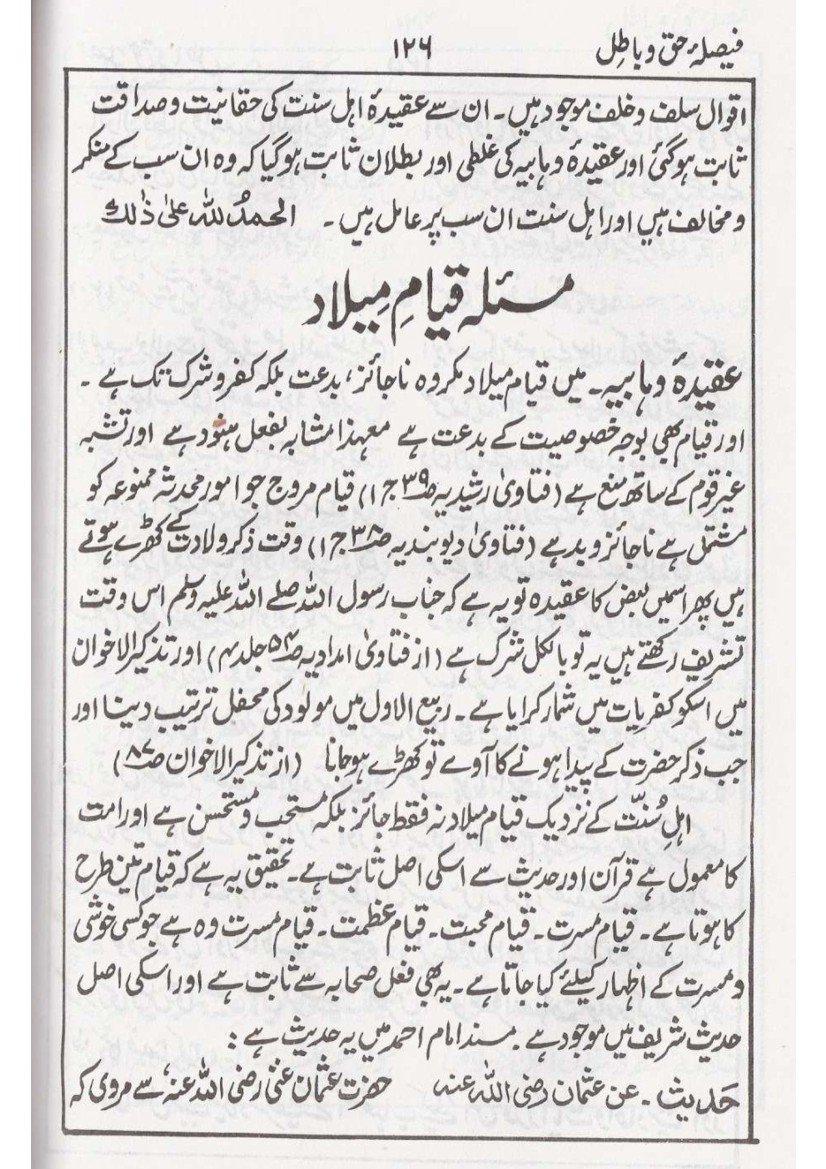 فیصلۂ حق و باطل
۱۲۶
اقوال سلف و خلف موجود ہیں۔ ان سے عقیدۂ اہل سنت کی حقانیت و صداقت
ثابت ہوگئی اور عقیدۂ وہابیہ کی غلطی اور بطلان ثابت ہوگیا کہ وہ ان سب کے منکر
و مخالف ہیں اور اہل سنت ان سب پر عامل ہیں۔ الحمدُ للہ علیٰ ذٰلک
مسئلہ قیامِ میلاد
عقیدۂ وہابیہ۔ میں قیام میلاد مکروہ ناجائز، بدعت بلکہ کفر و شرک تک ہے۔
اور قیام بھی بوجہ خصوصیت کے بدعت ہے معہذا مشابہ بفعل ہنود ہے اور تشبہ
غیر قوم کے ساتھ منع ہے (فتاویٰ رشیدیہ ص۳۹ ج۱) قیام مروج جو امور محدثہ ممنوعہ کو
مشتمل ہے ناجائز و بد ہے (فتاویٰ دیوبندیہ ص۳۸ ج۱) وقت ذکر ولادت کے کھڑے ہوتے
ہیں پھر اسمیں بعض کا عقیدہ تو یہ ہے کہ جناب رسول اللہ صلے اللہ علیہ وسلم اس وقت
تشریف رکھتے ہیں یہ تو بالکل شرک ہے (از فتاویٰ امدادیہ ص۵۴ جلد۴) اور تذکیر الاخوان
میں اسکو کفریات میں شمار کرایا ہے۔ ربیع الاول میں مولود کی محفل ترتیب دینا اور
جب ذکر حضرت کے پیدا ہونے کا آوے تو کھڑے ہوجانا (از تذکیر الاخوان ص۸۷)
اہلِ سُنّت کے نزدیک قیام میلاد نہ فقط جائز بلکہ مستحب و مستحسن ہے اور امت
کا معمول ہے قرآن اور حدیث سے اسکی اصل ثابت ہے۔ تحقیق یہ ہے کہ قیام تین طرح
کا ہوتا ہے۔ قیام مسرت۔ قیام محبت۔ قیام عظمت۔ قیام مسرت وہ ہے جو کسی خوشی
و مسرت کے اظہار کیلئے کیا جاتا ہے۔ یہ بھی فعل صحابہ سے ثابت ہے اور اسکی اصل
حدیث شریف میں موجود ہے۔ مسند امام احمد میں یہ حدیث ہے:
حَدیث۔ عن عثمان رضی اللہ عنہ حضرت عثمان غنی رضی اللہ عنہ سے مروی کہ